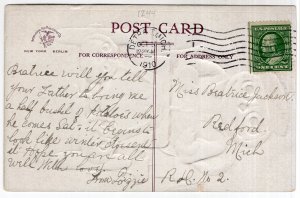 1244
POST-CARD
NEW YORK BERLIN
FOR CORRESPONDENCE
FOR ADDRESS ONLY
1910
Beatrice will you tell
your Father to bring me
a half bushel of potatoes when
he comes Sat. it begins to
look like winter
it hope you are all
will With love
Ann Lizzie
Miss Beatrice Jackson.
Redford.
Mich
R.d. No. 2.